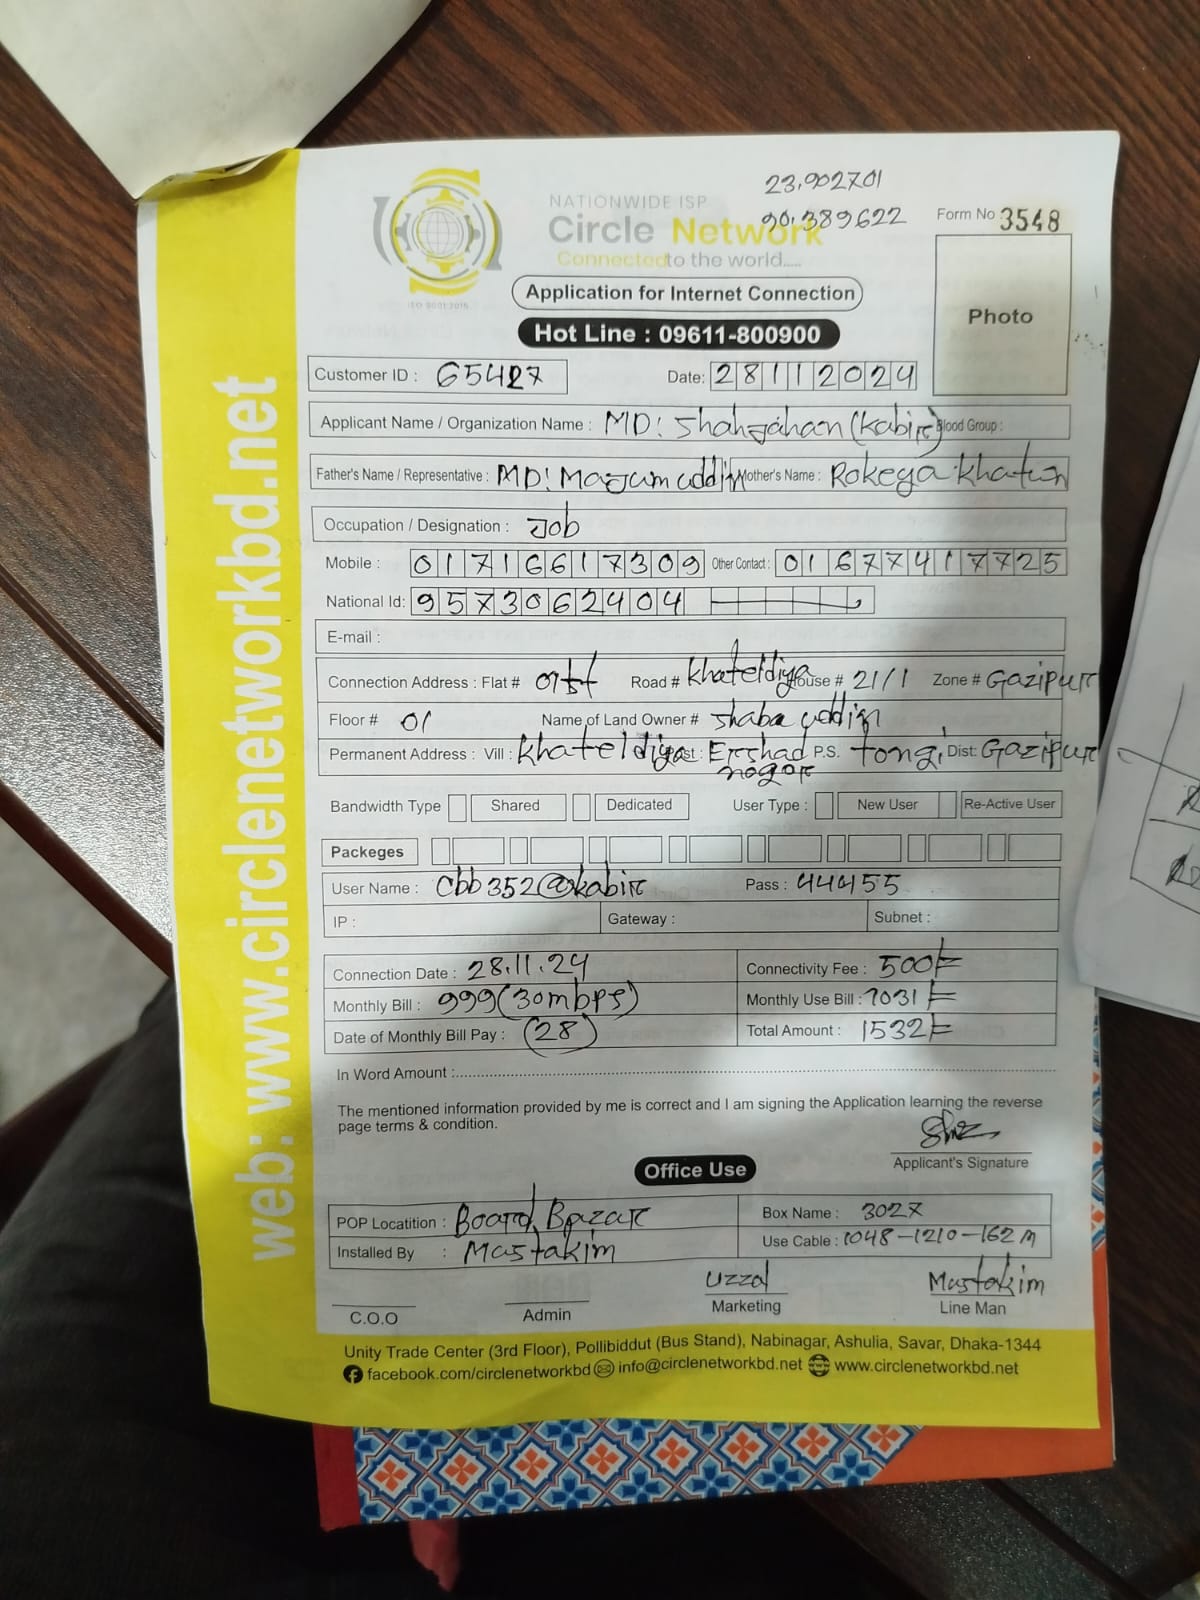 web: www.circlenetworkbd.net
23.902701
90.389622
NATIONWIDE ISP
Circle Network
Connected to the world.....
ISO 9001:2015
Form No 3548
Application for Internet Connection
Hot Line : 09611-800900
Photo
Customer ID : 65427 Date: 28112024
Applicant Name / Organization Name : MD! Shahjahan (Kabir) Blood Group :
Father's Name / Representative : MD! Mazum uddin Mother's Name : Rokeya Khatun
Occupation / Designation : Job
Mobile : 01716617309 Other Contact : 01677417725
National Id: 9573062404
E-mail :
Connection Address : Flat # Road # Khateldiya House # 21/1 Zone # Gazipur
Floor # 01 Name of Land Owner # Shaba uddin
Permanent Address : Vill : Khateldiya Post : Ershad nogor P.S. tongi Dist: Gazipur
Bandwidth Type Shared Dedicated User Type : New User Re-Active User
Packeges
User Name : cbb352@kabir Pass : 444455
IP : Gateway : Subnet :
Connection Date : 28.11.24 Connectivity Fee : 500/=
Monthly Bill : 999(30mbps) Monthly Use Bill : 1031/=
Date of Monthly Bill Pay : (28) Total Amount : 1532/=
In Word Amount :
The mentioned information provided by me is correct and I am signing the Application learning the reverse
page terms & condition.
Applicant's Signature
Office Use
POP Locatition : Board Bazar Box Name : 3027
Installed By : Mastakim Use Cable : 1048-1210-162 M
Uzzal Mastakim
C.O.O Admin Marketing Line Man
Unity Trade Center (3rd Floor), Pollibiddut (Bus Stand), Nabinagar, Ashulia, Savar, Dhaka-1344
facebook.com/circlenetworkbd info@circlenetworkbd.net www.circlenetworkbd.net